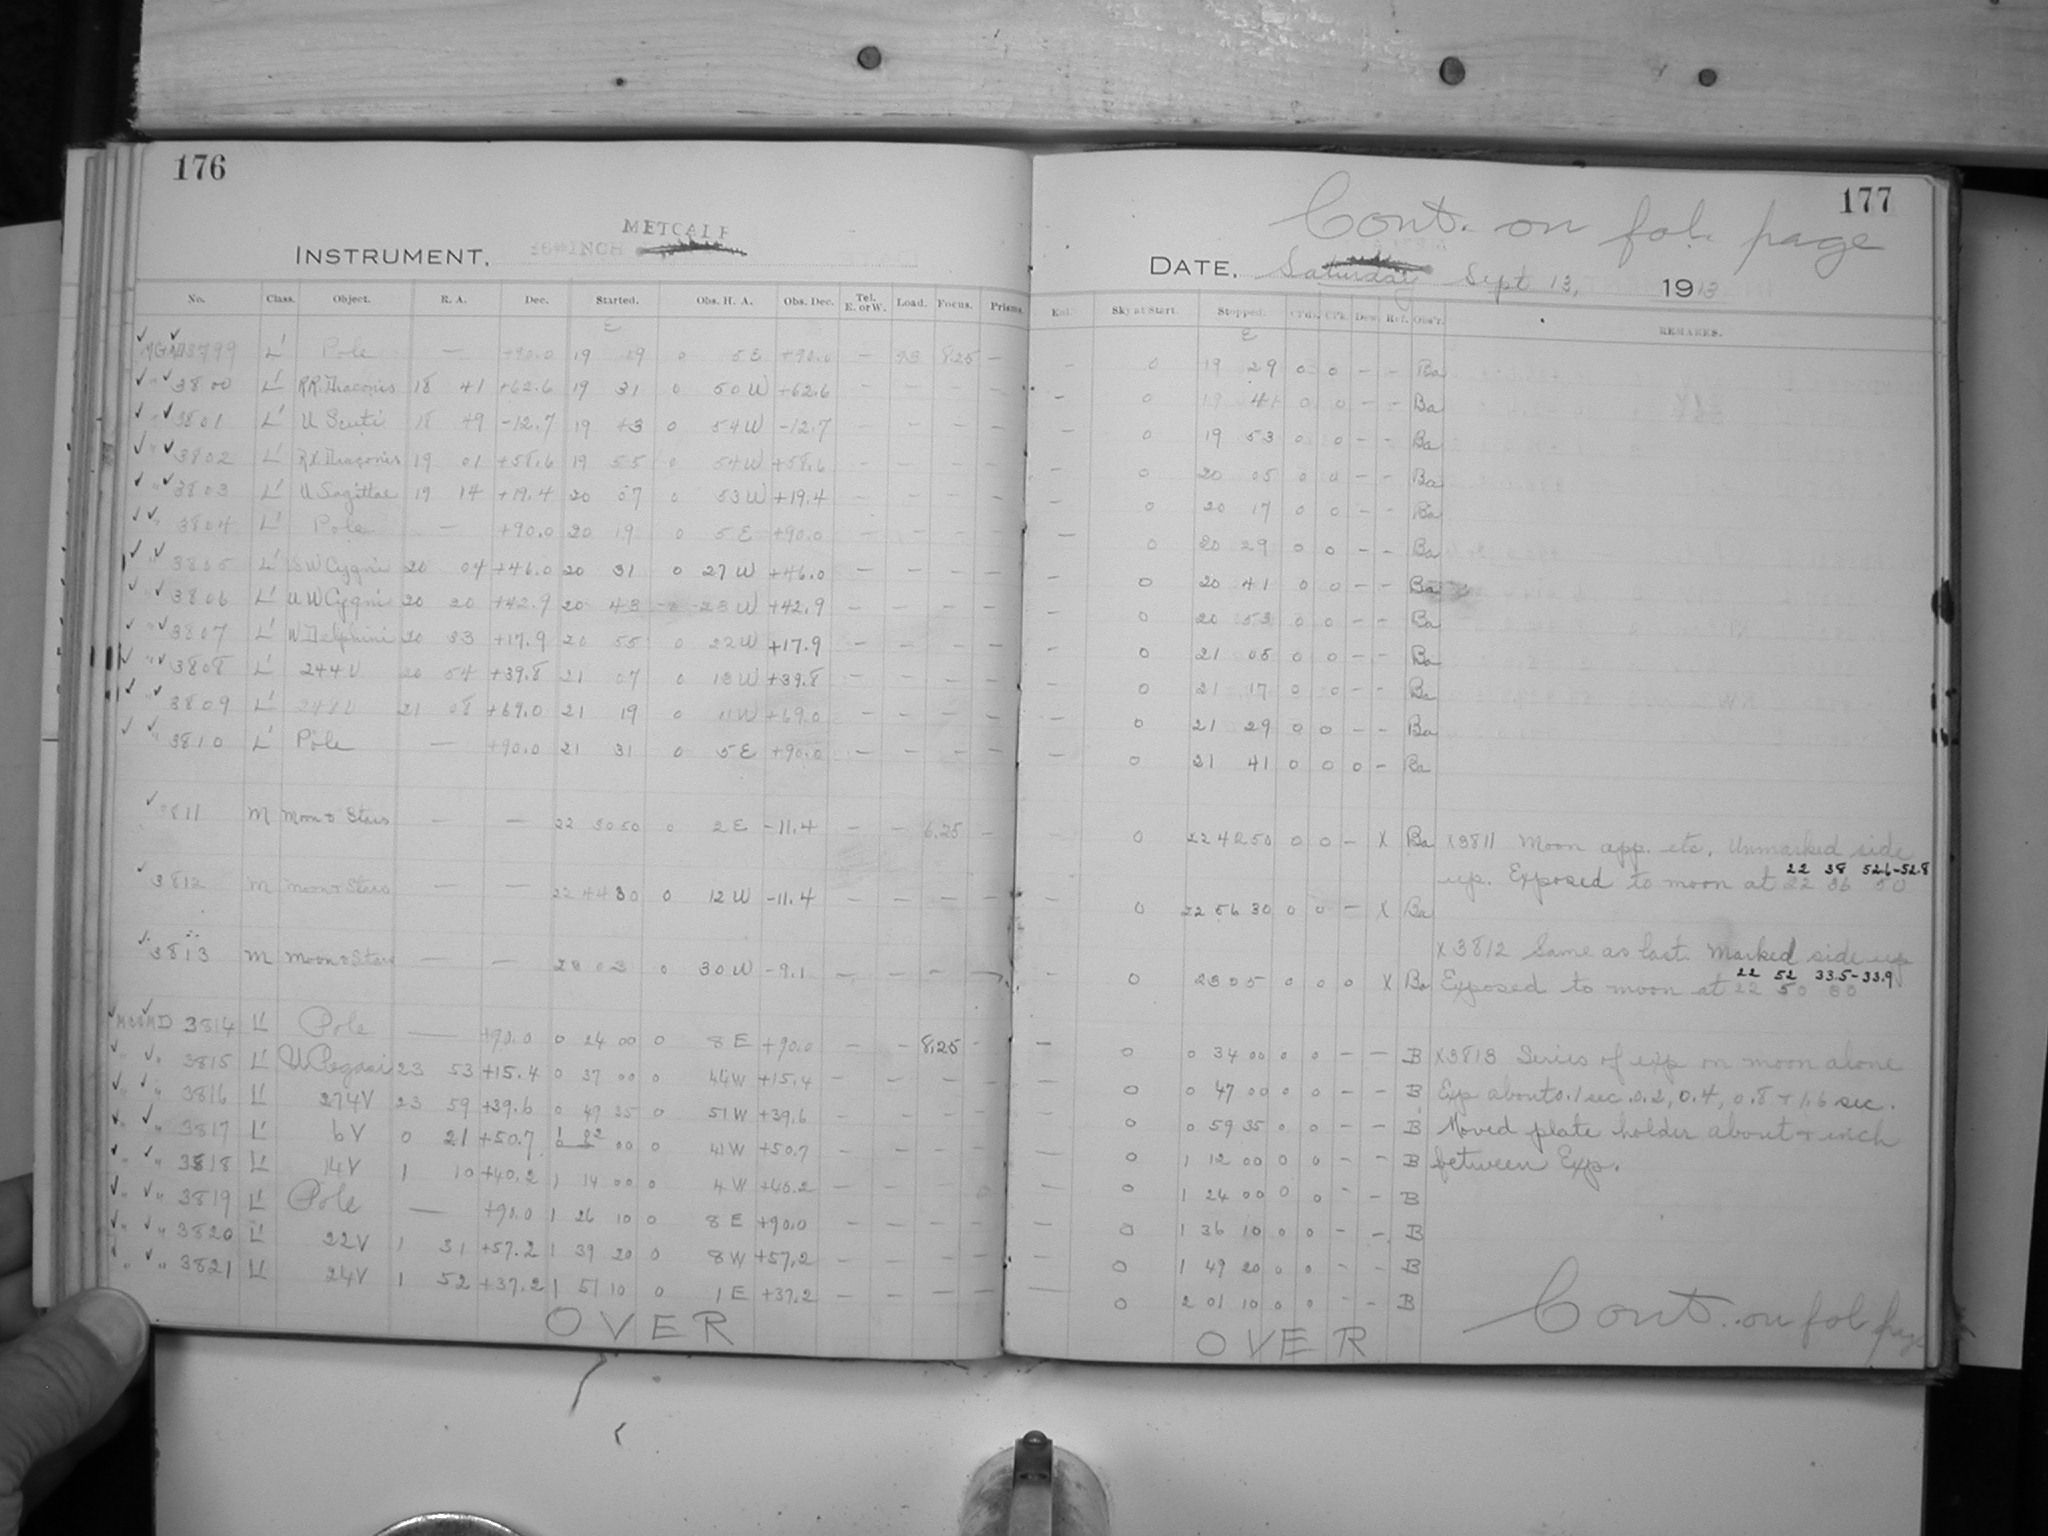 176
METCALF
INSTRUMENT. 16-INCH
No. Class. Object. R. A. Dec. Started. Obs. H. A. Obs. Dec. Tel. E. or W. Load. Focus. Prisms.
E
3799 L' Pole — +90.0 19 19 0 5 E +90.0 — 8.25 —
" 3800 L' RR Draconis 18 41 +62.6 19 31 0 50 W +62.6 — — — —
" 3801 L' U Scuti 18 49 -12.7 19 43 0 54 W -12.7 — — — —
" 3802 L' RX Draconis 19 01 +58.6 19 55 0 54 W +58.6 — — — —
" 3803 L' U Sagittae 19 14 +19.4 20 07 0 53 W +19.4 — — — —
" 3804 L' Pole — +90.0 20 19 0 5 E +90.0 — — — —
" 3805 L' SW Cygni 20 04 +46.0 20 31 0 27 W +46.0 — — — —
" 3806 L' UW Cygni 20 20 +42.9 20 43 0 23 W +42.9 — — — —
" 3807 L' W Delphini 20 33 +17.9 20 55 0 22 W +17.9 — — — —
" 3808 L' 244V 20 54 +39.8 21 07 0 13 W +39.8 — — — —
" 3809 L' 21 08 +69.0 21 19 0 11 W +69.0 — — — —
" 3810 L' Pole — +90.0 21 31 0 5 E +90.0 — — — —
3811 M Moon & Stars — — 22 30 50 0 2 E -11.4 — — 6.25 —
3812 M Moon & Stars — — 22 44 30 0 12 W -11.4 — — — —
3813 M Moon & Stars — — 23 03 0 30 W -9.1 — — — —
3814 L' Pole — +90.0 0 24 00 0 8 E +90.0 — — 8.25 —
" " 3815 L' U Pegasi 23 53 +15.4 0 37 00 0 44 W +15.4 — — — —
" " 3816 L' 274V 23 59 +39.6 0 49 35 0 51 W +39.6 — — — —
" " 3817 L' 6V 0 21 +50.7 1 02 00 0 41 W +50.7 — — — —
" " 3818 L' 14V 1 10 +40.2 1 14 00 0 4 W +40.2 — — — —
" " 3819 L' Pole — +90.0 1 26 10 0 8 E +90.0 — — — —
" " 3820 L' 22V 1 31 +57.2 1 39 20 0 8 W +57.2 — — — —
" " 3821 L' 24V 1 52 +37.2 1 51 10 0 1 E +37.2 — — — —
OVER
177
Cont. on fol. page
DATE. Saturday Sept 13, 1913
Sky at Start. Stopped. Cl'k. Dew. Ref. Obs'r. REMARKS.
E
— 0 19 29 0 0 — — Ba
— 0 19 41 0 0 — — Ba
— 0 19 53 0 0 — — Ba
— 0 20 05 0 0 — — Ba
— 0 20 17 0 0 — — Ba
— 0 20 29 0 0 — — Ba
— 0 20 41 0 0 — — Ba
— 0 20 53 0 0 — — Ba
— 0 21 05 0 0 — — Ba
— 0 21 17 0 0 — — Ba
— 0 21 29 0 0 — — Ba
— 0 21 41 0 0 0 — Ba
— 0 22 42 50 0 0 — X Ba X3811 Moon app. etc. Unmarked side
22 38 52.6-52.8
up. Exposed to moon at 22 36 50
— 0 22 56 30 0 0 — X Ba
X3812 Same as last. Marked side up
22 52 33.5-33.9
— 0 23 05 0 0 0 X Ba Exposed to moon at 22 50
— 0 0 34 00 0 0 — — B X3813 Series of exp on moon alone
— 0 0 47 00 0 0 — — B Exp about 0.1 sec. 0.2, 0.4, 0.8 + 1.6 sec.
— 0 0 59 35 0 0 — — B Moved plate holder about inch
— 0 1 12 00 0 0 — — B between Exp.
— 0 1 24 00 0 0 — — B
— 0 1 36 10 0 0 — — B
— 0 1 49 20 0 0 — — B
— 0 2 01 10 0 0 — — B
Cont. on fol page
OVER